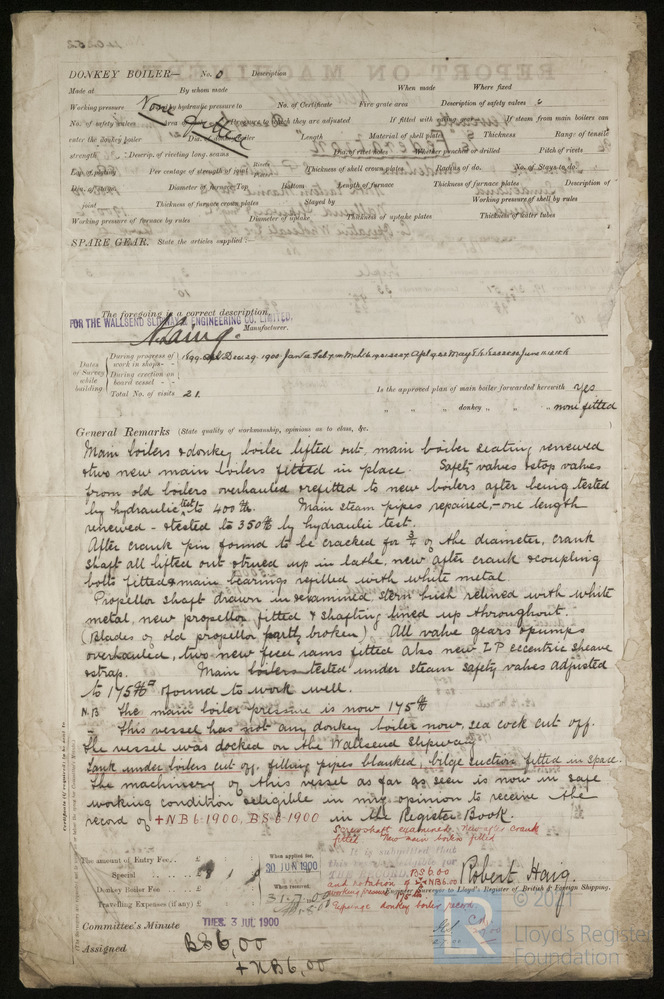 DONKEY BOILER— No. 0 Description
Made at By whom made When made Where fixed
Working pressure tested by hydraulic pressure to No. of Certificate Fire grate area Description of safety valves
None fitted
No. of safety valves area of Pressure to which they are adjusted If fitted with If steam from main boilers can
enter the donkey boiler Dia. of donkey boiler Length Material of shell plates Thickness Range of tensile
strength Descrip. of riveting long. seams Dia. of rivet holes Whether punched or drilled Pitch of rivets
Lap of plating Per centage of strength of joint Rivets Plates Thickness of shell crown plates Radius of do. No. of Stays to do.
Dia. of stays Diameter of furnace Top Bottom Length of furnace Thickness of furnace plates Description of
joint Thickness of furnace crown plates Stayed by Working pressure of shell by rules
Working pressure of furnace by rules Diameter of uptake Thickness of uptake plates Thickness of water tubes
SPARE GEAR. State the articles supplied:—
The foregoing is a correct description,
FOR THE WALLSEND SLIPWAY & ENGINEERING CO. LIMITED,
Manufacturer.
Dates of Survey while building
During progress of work in shops - -
During erection on board vessel - - -
Total No. of visits 21.
Is the approved plan of main boiler forwarded herewith yes
" " " donkey " " " none fitted
General Remarks (State quality of workmanship, opinions as to class, &c.
Main boilers & donkey boiler lifted out, main boiler seating renewed
& two new main boilers fitted in place. Safety valves & stop valves
from old boilers overhauled & refitted to new boilers after being tested
by hydraulic test to 400 lbs. Main steam pipes repaired, - one length
renewed - & tested to 350 lbs by hydraulic test.
After crank pin found to be cracked for 3/4 of the diameter, crank
shaft all lifted out & trued up in lathe, new after crank & coupling
bolts fitted & main bearings refilled with white metal.
Propellor shaft drawn in & examined, stern bush relined with white
metal, new propellor fitted & shafting lined up throughout.
(Blades of old propellor partly broken). All valve gears & pumps
overhauled, two new feed rams fitted also new I.P eccentric sheave
& strap. Main boilers tested under steam safety valves adjusted
to 175 lbs & found to work well.
NB The main boiler pressure is now 175 lbs
" This vessel has not any donkey boiler now, sea cock cut off.
The vessel was docked on the Wallsend Slipway
Tank under boilers cut off, filling pipes blanked, bilge suction fitted in space.
The machinery of this vessel as far as seen is now in safe
working condition & eligible in my opinion to receive the
record of + NB 6-1900, BS 6-1900 in the Register Book.
Screw shaft examined. New after crank
fitted New main boilers fitted
The amount of Entry Fee.. £
Special .. .. .. £
Donkey Boiler Fee .. .. £
Travelling Expenses (if any) £
When applied for,
30 JUN 1900
When received,
BS 6.00
and notation of + NB 6.00
working pressure 175 lbs
Expunge donkey boiler record
Robert Haig.
Surveyor to Lloyd's Register of British & Foreign Shipping.
Committee's Minute TUES. 3 JUL 1900
Assigned BS 6,00
+ NB 6,00
© 2021
Lloyd's Register
Foundation
LR